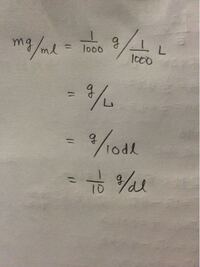 mg/ml = 1/1000 g / 1/1000 L
= g/L
= g/10dl
= 1/10 g/dl